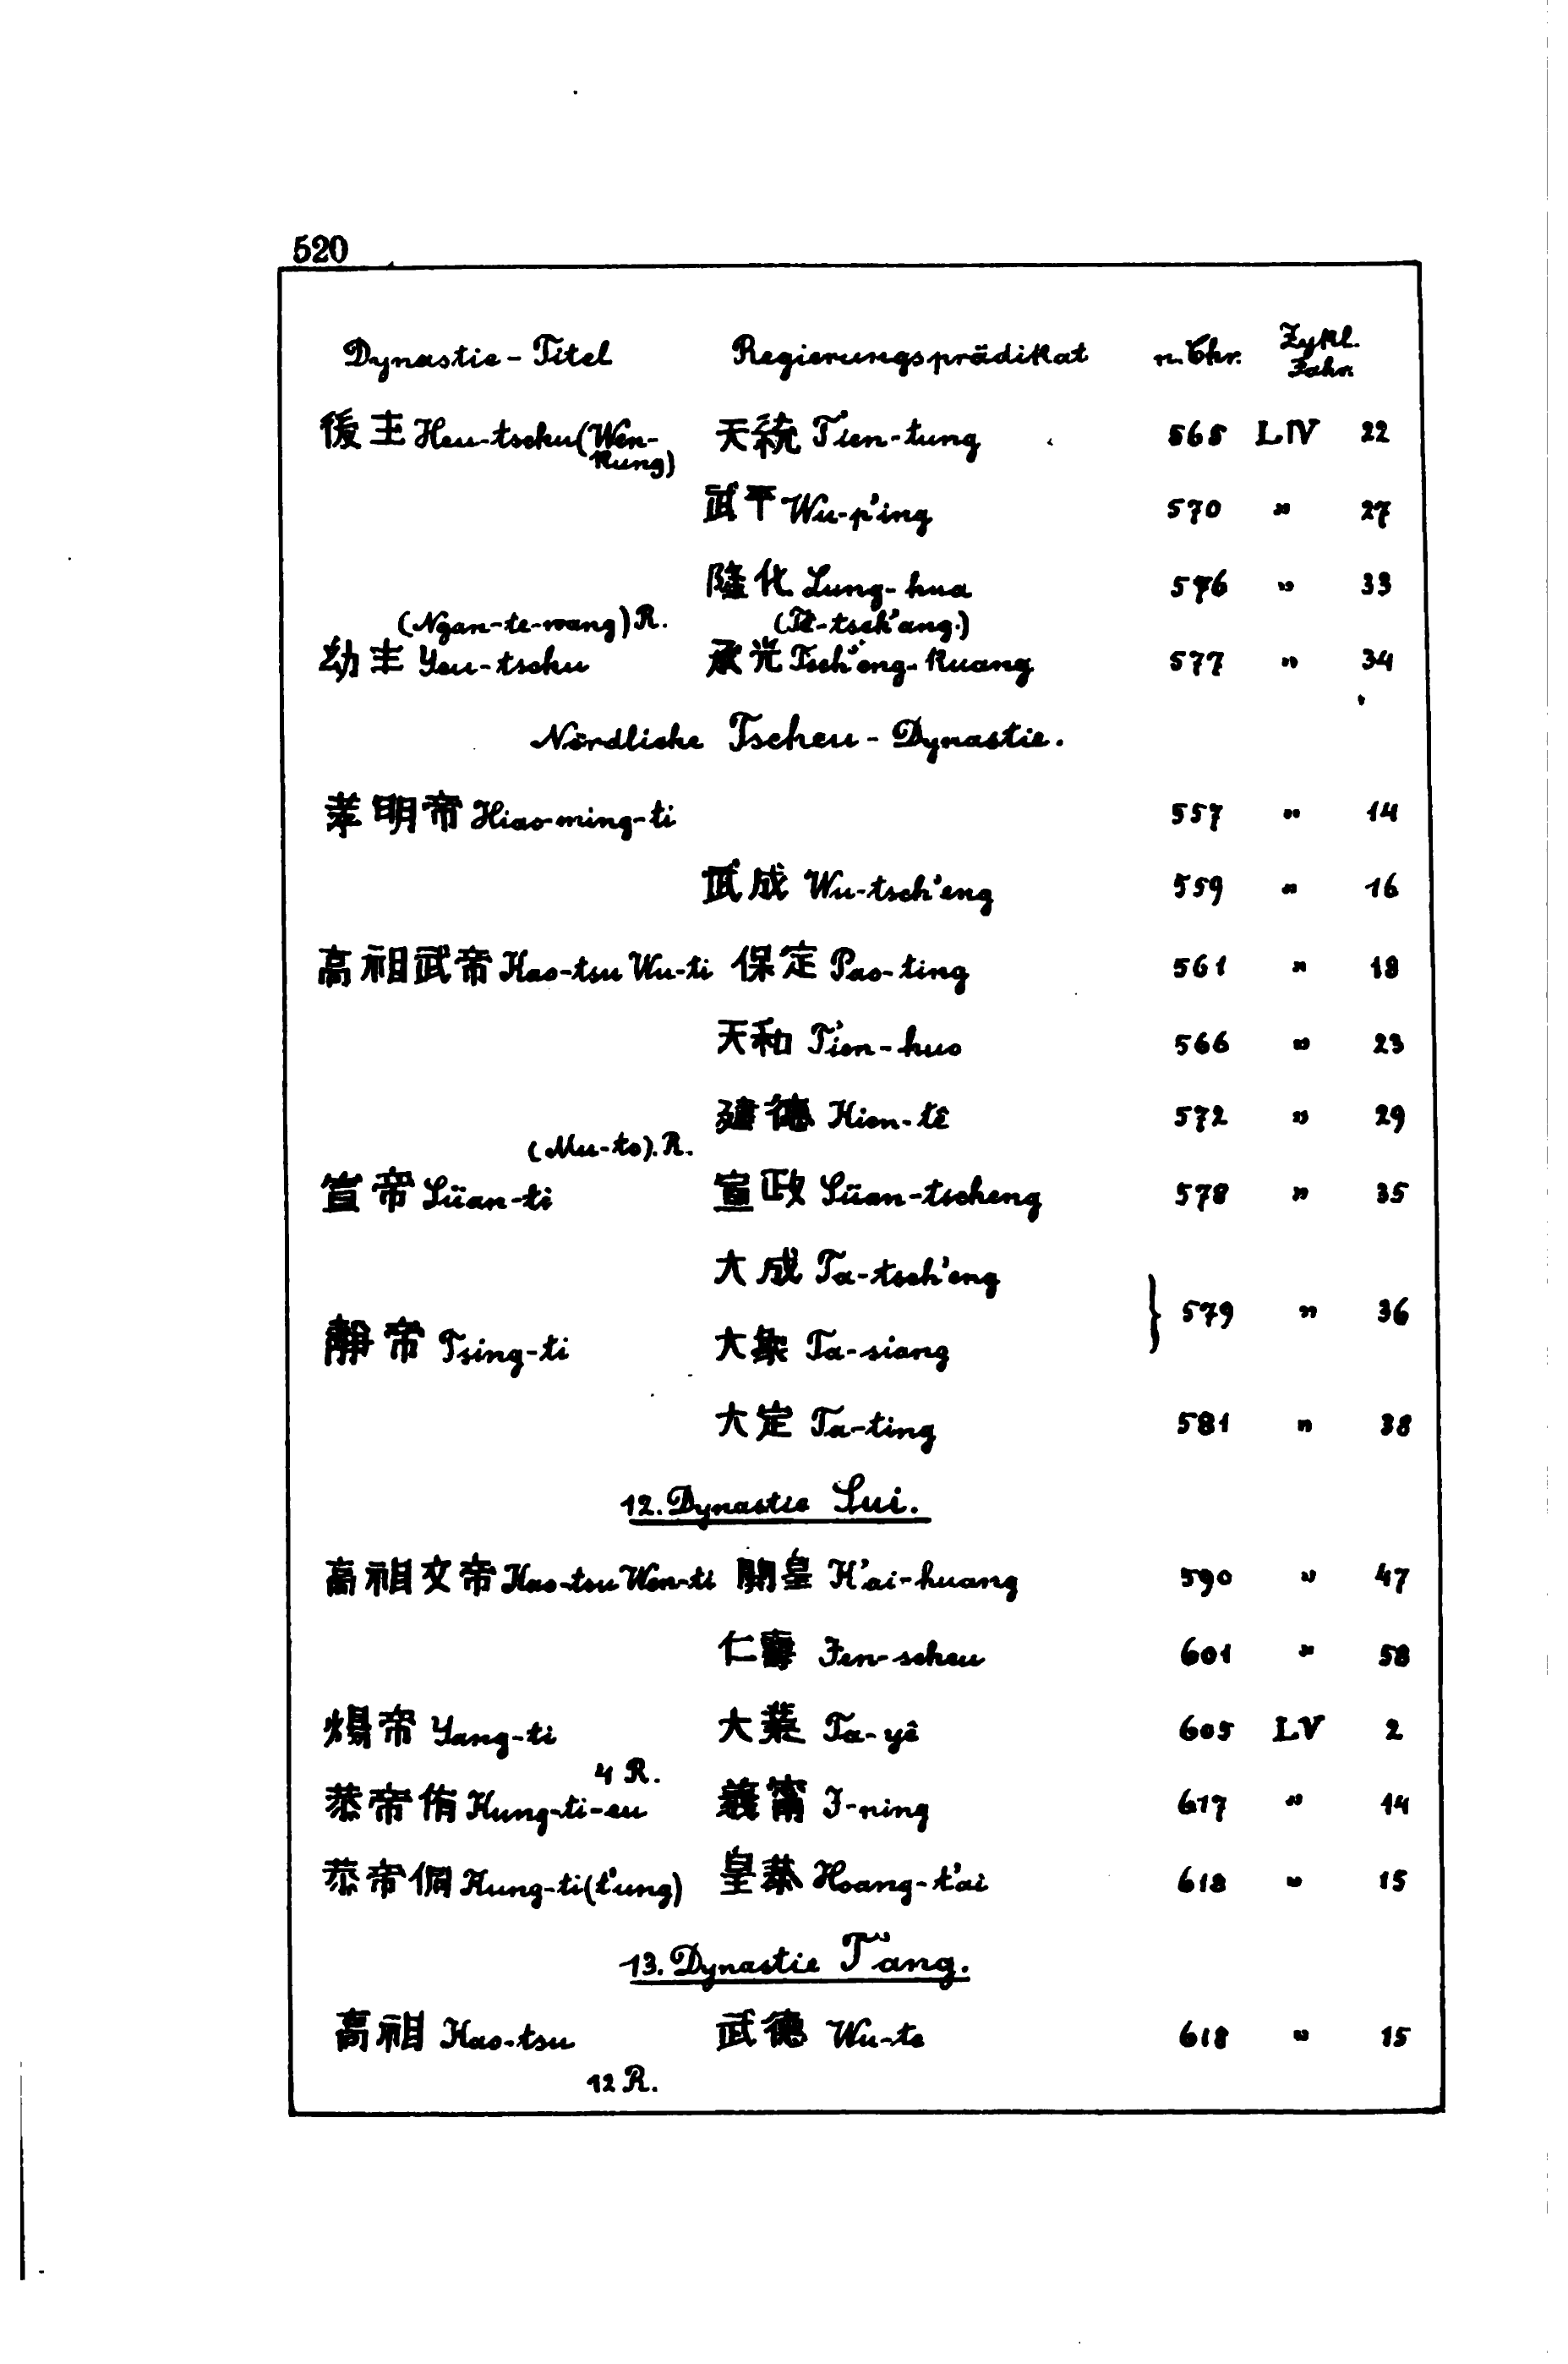 520
Dynastie-Titel Regierungsprädikat n. Chr. Zykl. Jahr.
後主 Heu-tschu (Wen-kung) 天統 T'ien-tung 565 LIV 22
武平 Wu-p'ing 570 " 27
隆化 Lung-hua 576 " 33
(Ngan-te-wang) R. (Tê-tsch'ang.)
幼主 Yeu-tschu 承光 Tsch'eng-kuang 577 " 34
Nördliche Tscheu-Dynastie.
孝明帝 Hiao-ming-ti 557 " 14
武成 Wu-tsch'eng 559 " 16
高祖武帝 Kao-tsu Wu-ti 保定 Pao-ting 561 " 18
天和 T'ien-huo 566 " 23
建德 Kien-tê 572 " 29
(Mu-to). R.
宣帝 Süan-ti 宣政 Süan-tscheng 578 " 35
大成 Ta-tsch'eng
} 579 " 36
靜帝 Tsing-ti 大象 Ta-siang
大定 Ta-ting 581 " 38
12. Dynastie Sui.
高祖文帝 Kao-tsu Wen-ti 開皇 K'ai-huang 590 " 47
仁壽 Jen-scheu 601 " 58
煬帝 Yang-ti 大業 Ta-yê 605 LV 2
4 R.
恭帝侑 Kung-ti-eu 義甯 I-ning 617 " 14
恭帝侗 Kung-ti (t'ung) 皇泰 Hoang-t'ai 618 " 15
13. Dynastie T'ang.
高祖 Kao-tsu 武德 Wu-te 618 " 15
12 R.